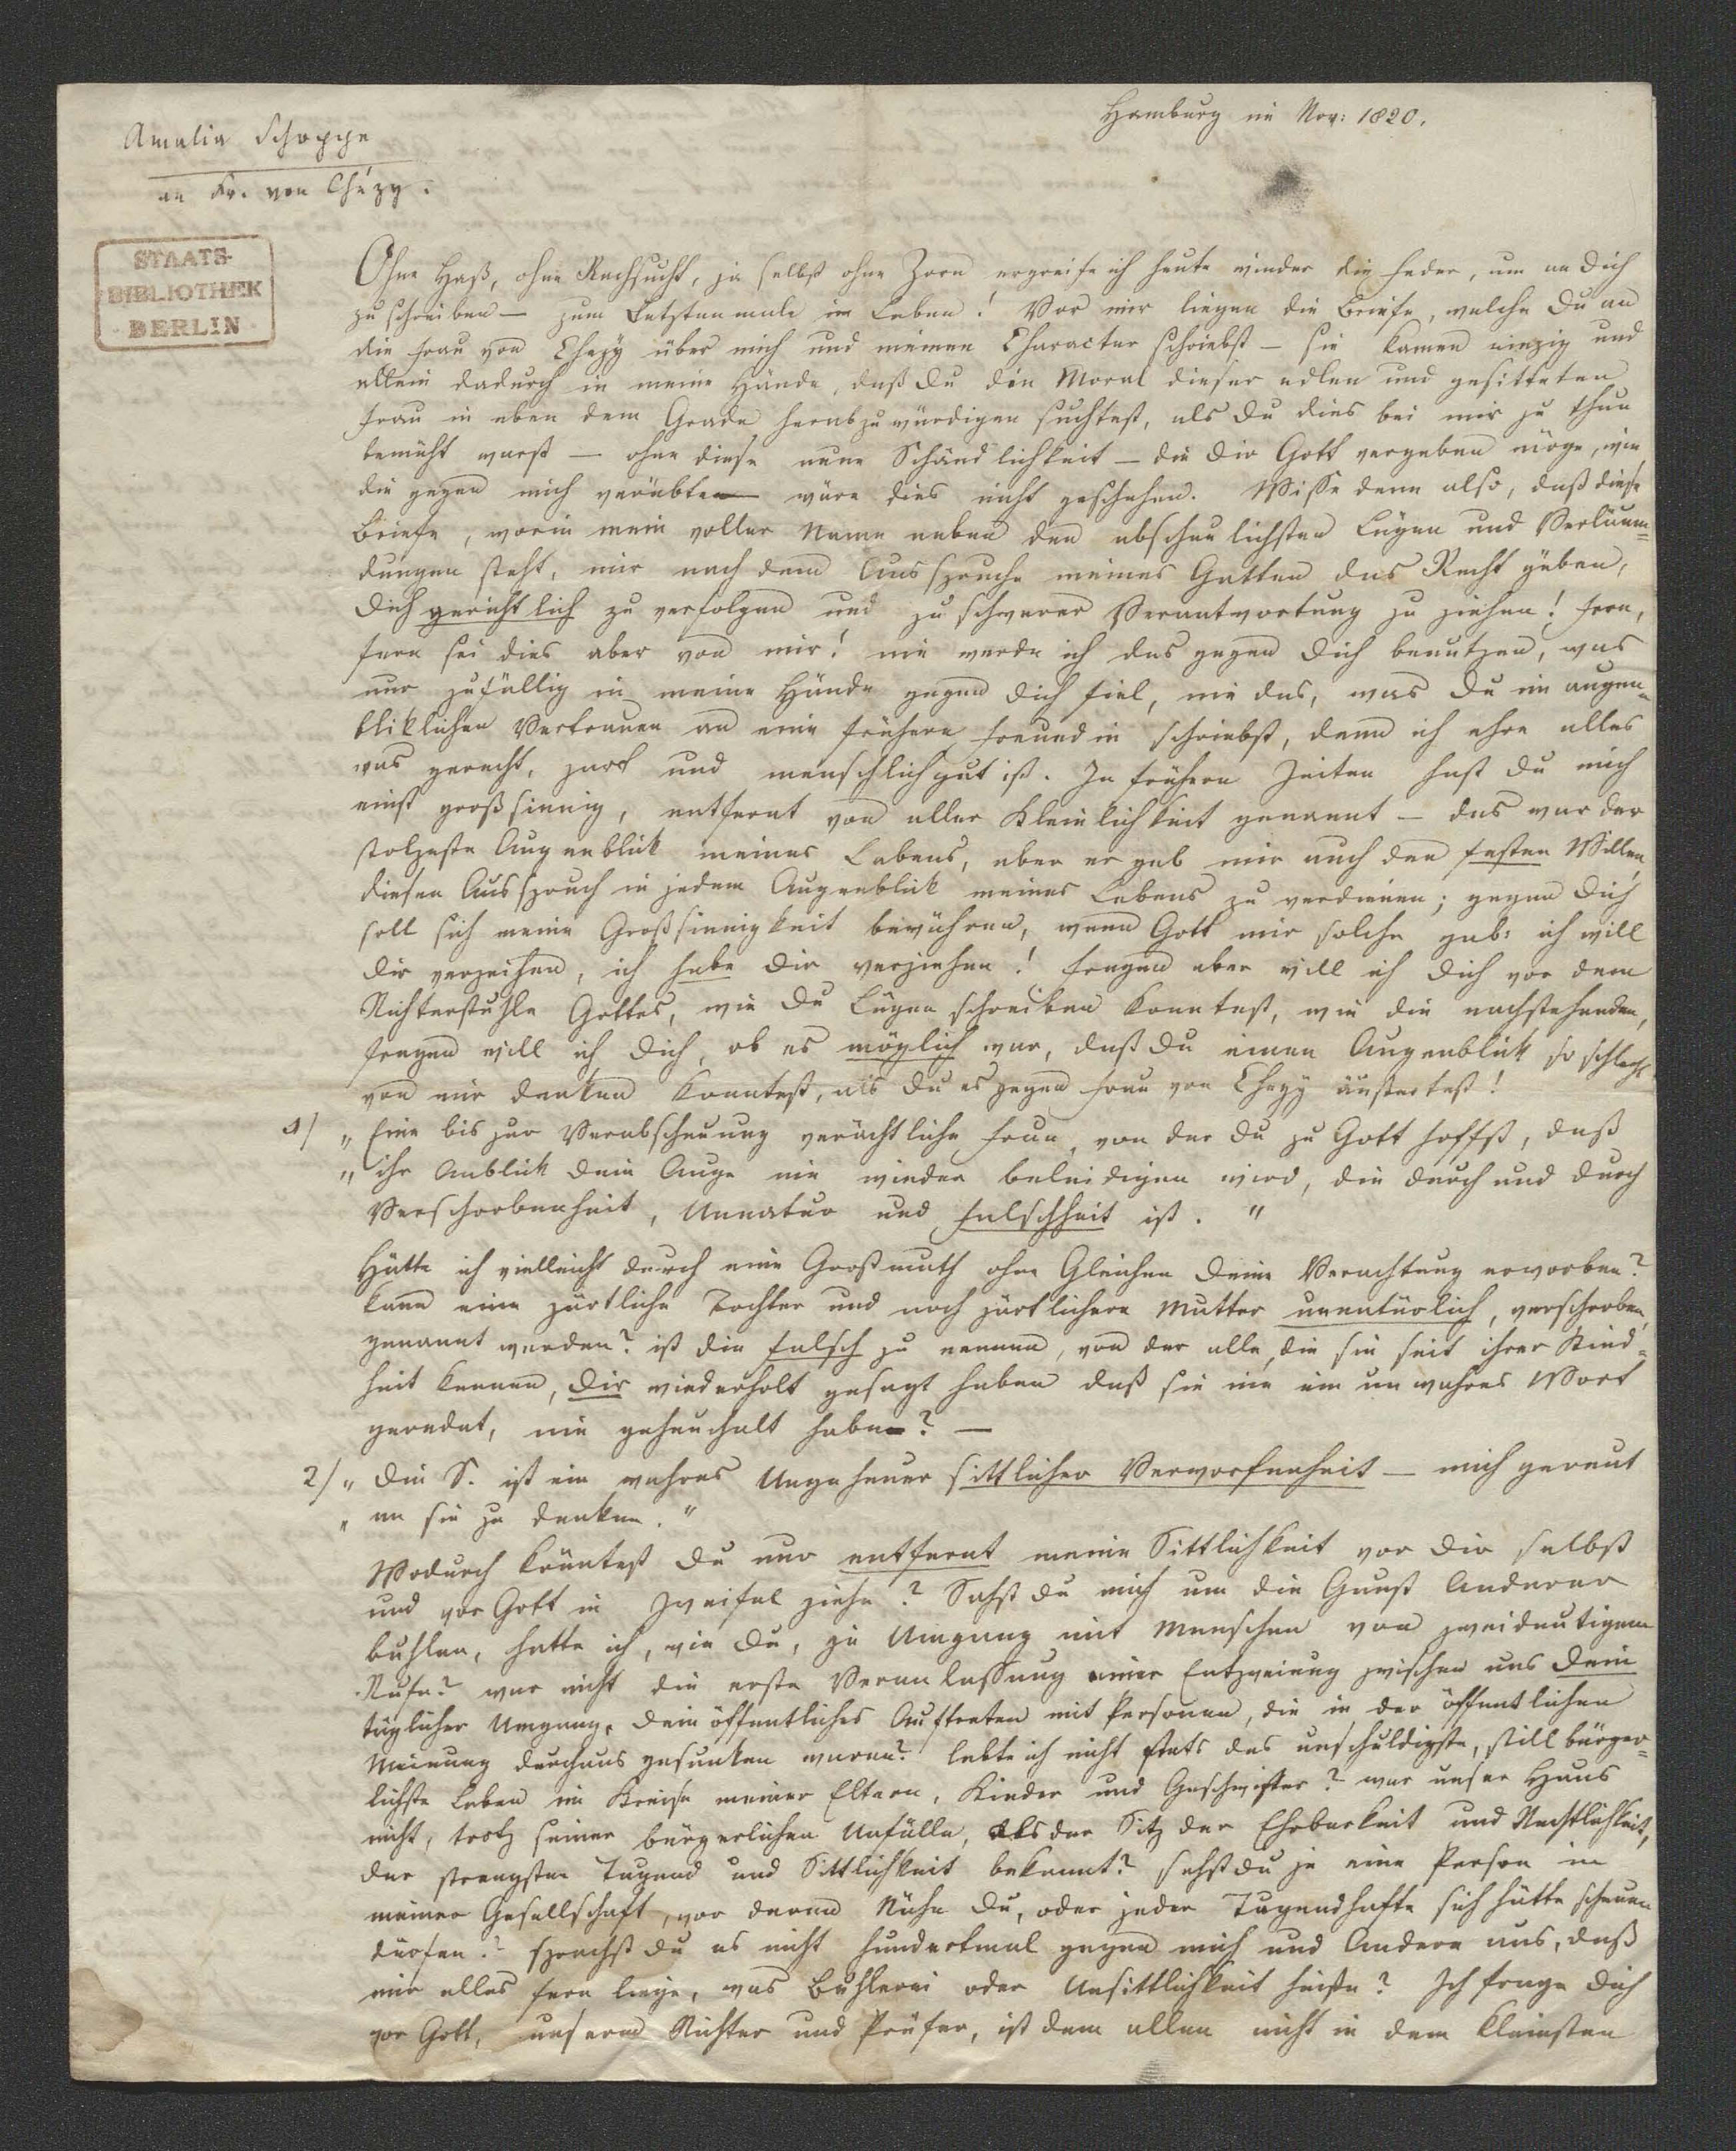 Hamburg im Nov: 1820.
Amalia Schoppe
an Fr. von Chézy.
STAATS-
BIBLIOTHEK
BERLIN
Ohne Haß, ohne Rachsucht, ja selbst ohne Zorn ergreife ich heute wieder die Feder, um an Dich
zu schreiben — zum Letztenmale im Leben! Vor mir liegen die Briefe, welche Du an
die Frau von Chezy über mich und meinen Character schriebst — sie kamen einzig und
allein dadurch in meine Hände, daß Du die Moral dieser edlen und gesitteten
Frau in eben dem Grade herabzuwürdigen suchtest, als Du dies bei mir zu thun
bemüht warst — ohne diese neue Schändlichkeit — die Dir Gott vergeben möge, wie
die gegen mich verübte — wäre dies nicht geschehen. Wisse denn also, daß diese
Briefe, worin mein voller Name neben den abscheulichsten Lügen und Verläum=
dungen steht, mir nach dem Ausspruche meines Gatten das Recht gäben,
Dich gerichtlich zu verfolgen und zu schwerer Verantwortung zu ziehen! fern,
fern sei dies aber von mir! nie werde ich das gegen Dich benutzen, was
nur zufällig in meine Hände gegen Dich fiel, nie das, was Du im augen=
bliklichen Vertrauen an eine frühere Freundin schriebst, denn ich ehre alles
was gerecht, zart und menschlich gut ist. In frühern Zeiten hast Du mich
einst großsinnig, entfernt von aller Kleinlichkeit genannt — das war der
stolzeste Augenblik meines Lebens, aber er gab mir auch den festen Willen,
diesen Ausspruch in jedem Augenblik meines Lebens zu verdienen; gegen Dich
soll sich meine Großsinnigkeit bewähren, wenn Gott mir solche gab: ich will
Dir verzeihen, ich habe Dir verziehen! fragen aber will ich Dich vor dem
Richterstuhle Gottes, wie Du Lügen schreiben konntest, wie die nachstehenden,
fragen will ich Dich, ob es möglich war, daß Du einen Augenblik so schlecht
von mir denken konntest, als Du es gegen Frau von Chezy äußertest!
1/ „Eine bis zur Verabscheuung verächtliche Frau, von der Du zu Gott hoffst, daß
„ihr Anblik Dein Auge nie wieder beleidigen wird, die durch und durch
Verschrobenheit, Unnatur und Falschheit ist."
Hätte ich vielleicht durch eine Großmuth ohne Gleichen Deine Verachtung erworben?
kann eine zärtliche Tochter und noch zärtlichere Mutter unnatürlich, verschroben,
genannt werden? ist die falsch zu nennen, von der alle, die sie seit ihrer Kind=
heit kennen, Dir wiederholt gesagt haben daß sie nie ein unwahres Wort
geredet, nie geheuchelt habe? —
2/ „Die S. ist ein wahres Ungeheuer sittlicher Verworfenheit — mich gereut
„an sie zu denken."
Wodurch könntest Du nur entfernt meine Sittlichkeit vor Dir selbst
und vor Gott in Zweifel ziehn? Sahst Du mich um die Gunst Anderer
buhlen, hatte ich, wie Du, je Umgang mit Menschen von zweideutigem
Rufe? war nicht die erste Veranlassung einer Entzweiung zwischen uns Dein
täglicher Umgang, Dein öffentliches Auftreten mit Personen, die in der öffentlichen
Meinung durchaus gesunken waren? lebte ich nicht stets das unschuldigste, still bürger=
lichste Leben im Kreise meiner Eltern, Kinder und Geschwister? war unser Haus
nicht, trotz seiner bürgerlichen Unfälle, als der Sitz der Ehrbarkeit und Rechtlichkeit,
der strengsten Tugend und Sittlichkeit bekannt? sahst Du je eine Person in
meiner Gesellschaft, vor deren Nähe Du, oder jeder Tugendhafte sich hätte scheuen
dürfen? sprachst Du es nicht hundertmal gegen mich und Andere aus, daß
mir alles fern liege, was Buhlerei oder Unsittlichkeit heiße? Ich frage Dich
vor Gott, unserm Richter und Prüfer, ist dem allen nicht in dem kleinsten